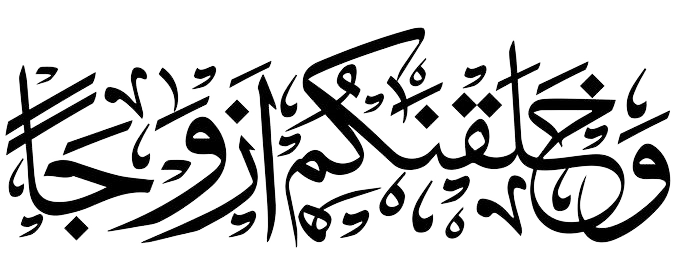 وَخَلَقْنَكُمْ اَزْوَجًا